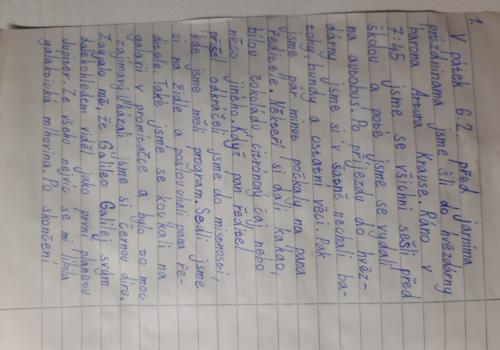 1.
V pátek 6.2. před jarníma
prázdninama jsme šli do hvězdárny
barona Artura Krause. Ráno v
7:45 jsme se všichni sešli před
školou a poté jsme se vydali
na autobus. Po příjezdu do hvěz-
dárny jsme si v šatně nechali ba-
tohy, bundy a ostatní věci. Pak
jsme pár minut počkaly na pana
ředitele. Někteří si dali kakao,
bílou čokoládu, citrónový čaj nebo
něco jiného. Když pan ředitel
přišel odkráčeli jsme do místnosti,
kde jsme měli program. Sedli jsme
si na židle a poslouchali pana ře-
ditele. Také jsme se koukali na
galaxii v promítačce a bylo to moc
zajímavý. Ukázali jsme si černou díru.
Zaujalo mě, že Galileo Galilej svým
dalekohledem viděl jako první planetu
Jupiter. Ze všeho nejvíc se mi líbila
galaktická mlhovina. Po skončení